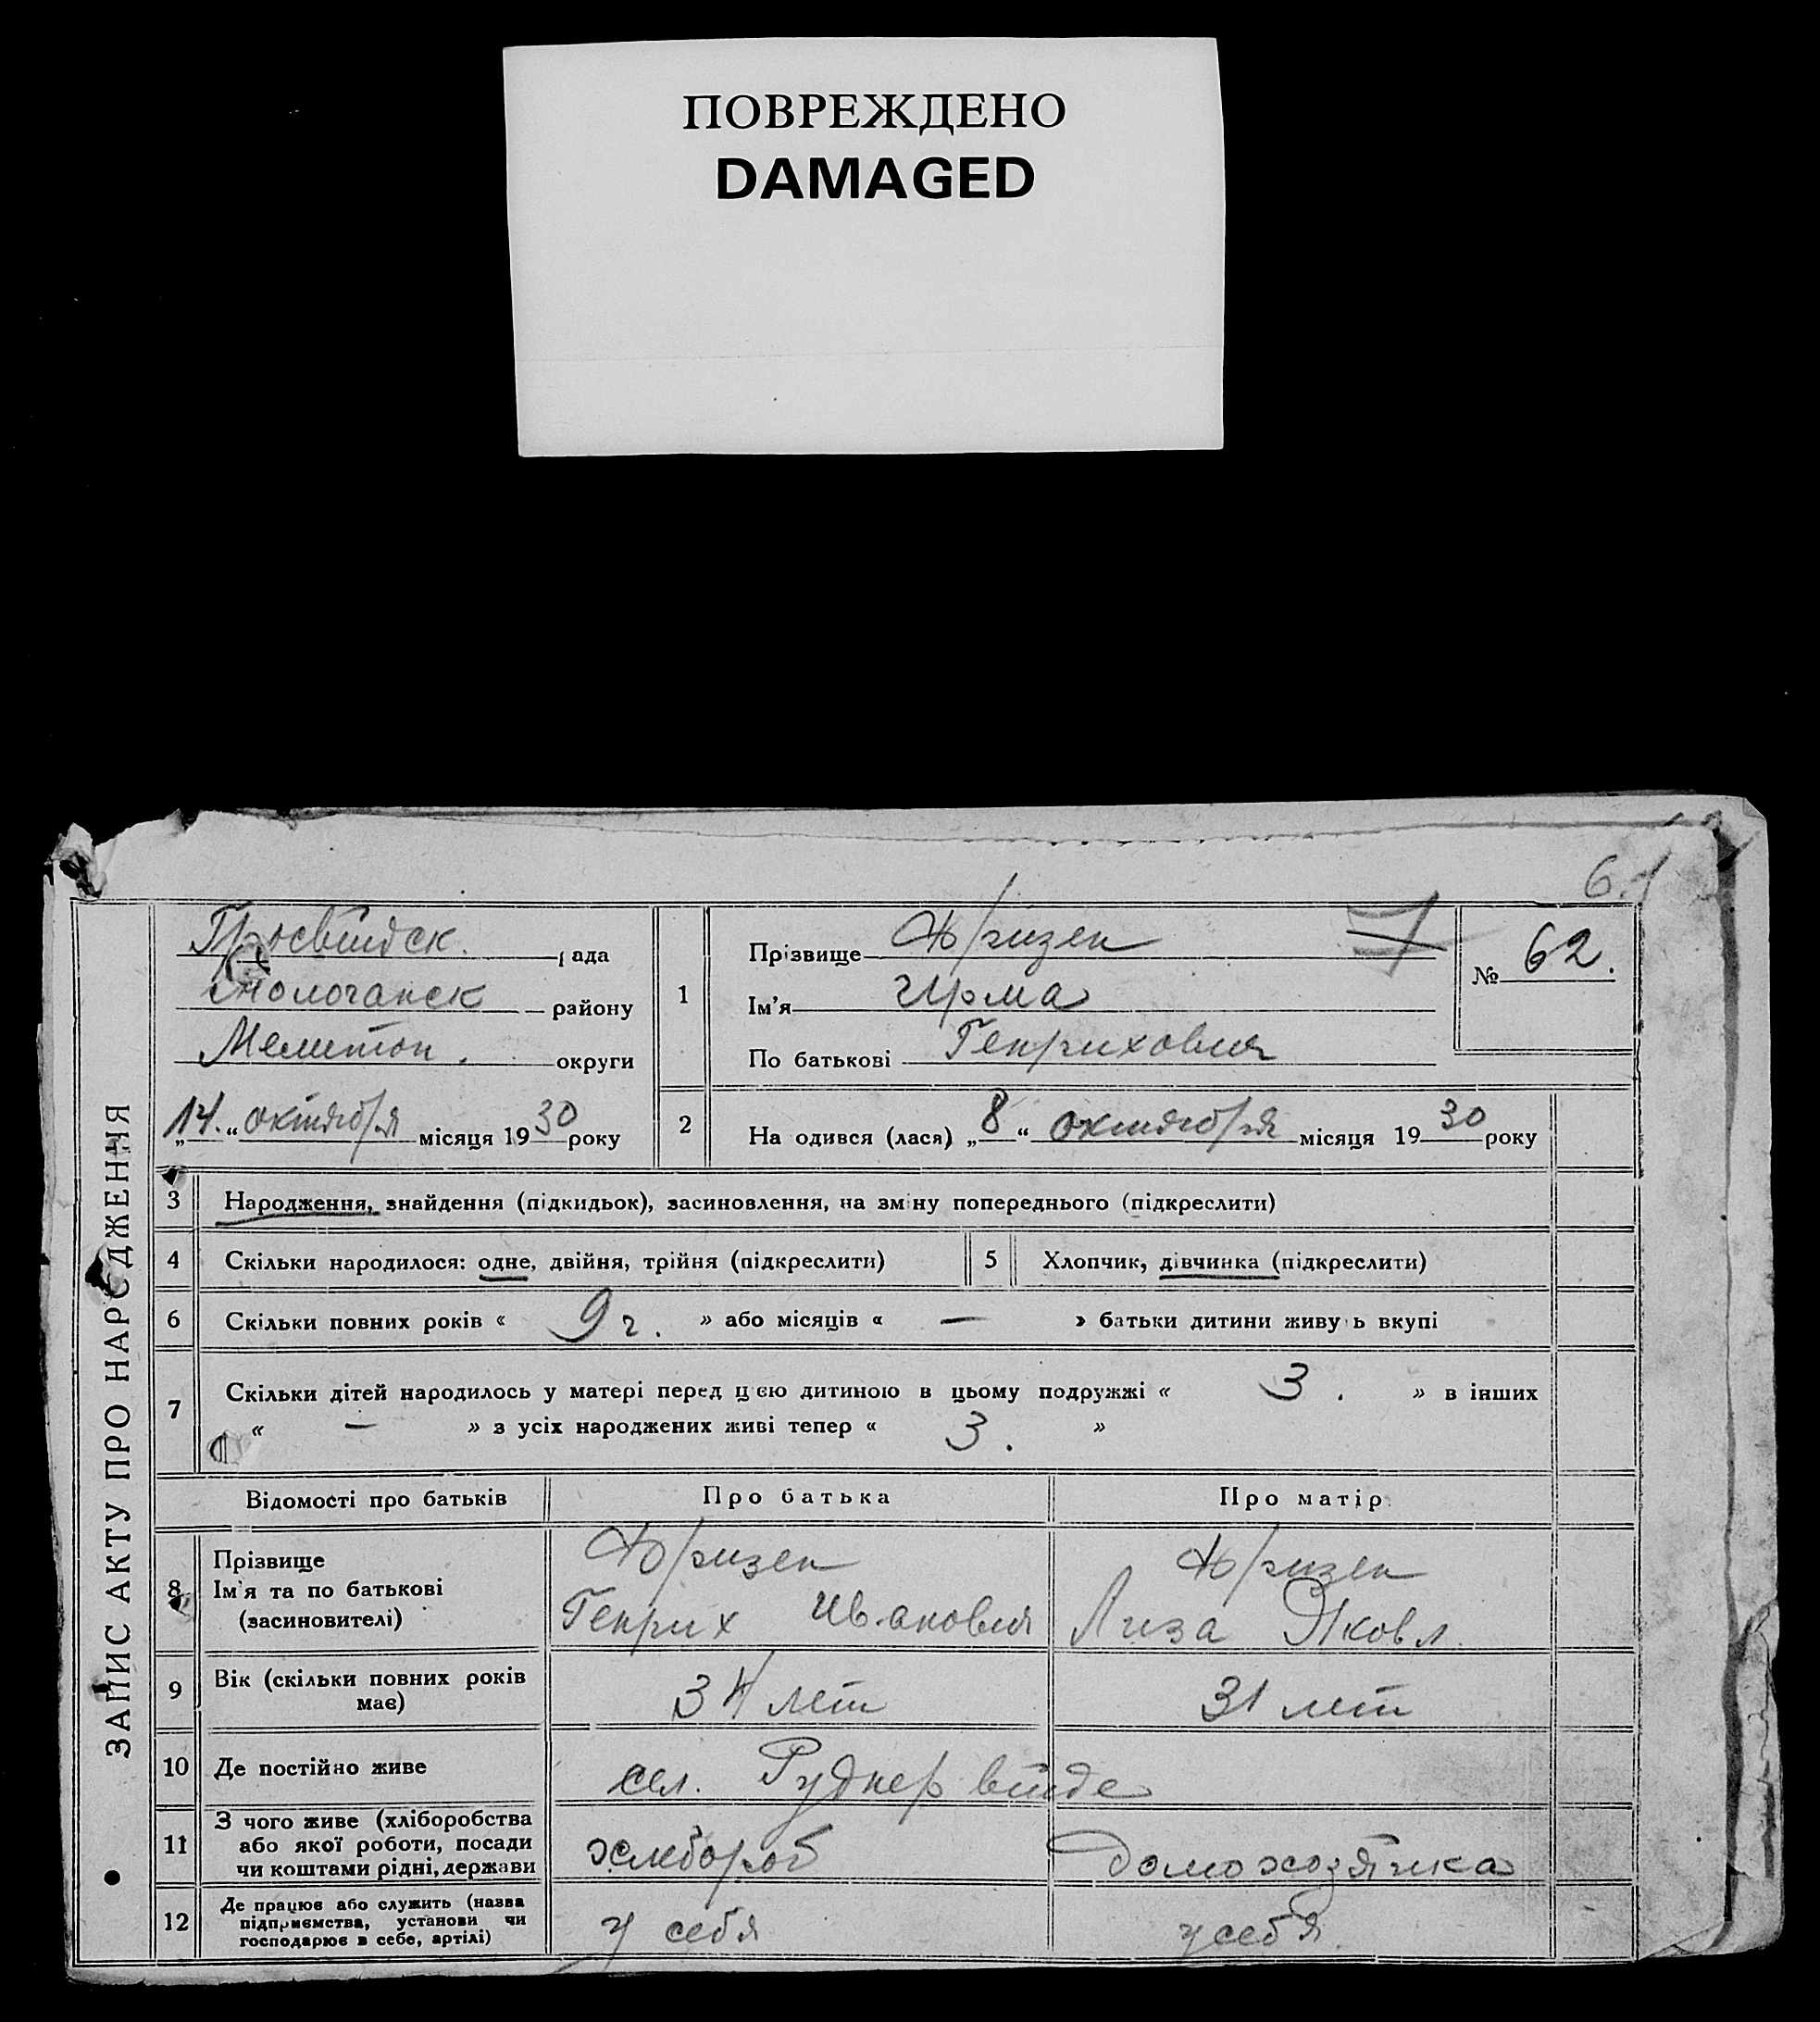 ПОВРЕЖДЕНО
DAMAGED
ЗАПИС АКТУ ПРО НАРОДЖЕННЯ
рада
Молочанск району
Мелитоп. округи
„14.“ октября місяця 1930 року
1
Прізвище Фризен
Ім'я Ирма
По батькові Генриховна
№ 62.
2 На одився (лася) „8“ октября місяця 1930 року
3 Народження, знайдення (підкидьок), засиновлення, на зміну попереднього (підкреслити)
4 Скільки народилося: одне, двійня, трійня (підкреслити) 5 Хлопчик, дівчинка (підкреслити)
6 Скільки повних років « 9 г. » або місяців « — » батьки дитини живуть вкупі
7 Скільки дітей народилось у матері перед цією дитиною в цьому подружжі « 3. » в інших
« — » з усіх народжених живі тепер « 3. »
Відомості про батьків Про батька Про матір
8 Прізвище Фризен Фризен
Ім'я та по батькові Генрих Иванович Лиза Яковл.
(засиновителі)
9 Вік (скільки повних років має) 34 лет 31 лет
10 Де постійно живе сел. Руднервейде
11 З чого живе (хліборобства хлебороб домохозяйка
або якої роботи, посади
чи коштами рідні, держави
12 Де працює або служить (назва у себя у себя
підприємства, установи чи
господарює в себе, артілі)